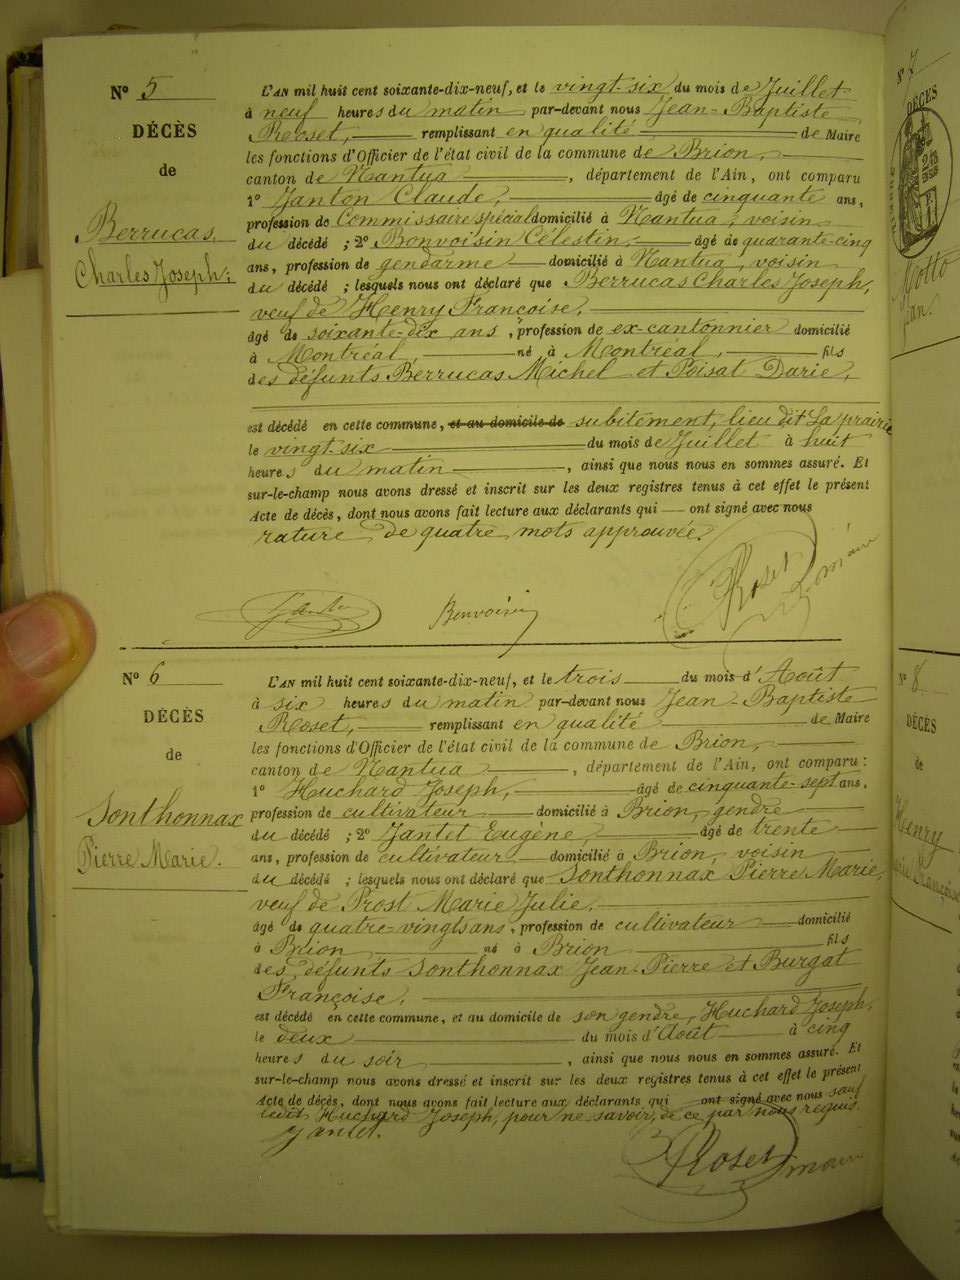 N° 5
DÉCÈS
de
Berrucas,
Charles Joseph;
L'AN mil huit cent soixante-dix-neuf, et le vingt-six du mois de Juillet
à neuf heures du matin par-devant nous Jean-Baptiste
Roset, remplissant en qualité de Maire
les fonctions d'Officier de l'état civil de la commune de Brion,
canton de Nantua, département de l'Ain, ont comparu
1° Janton Claude, âgé de cinquante ans,
profession de Commissaire spécial domicilié à Nantua, voisin
du décédé; 2° Bonvoisin Célestin, âgé de quarante-cinq
ans, profession de gendarme domicilié à Nantua, voisin
du décédé; lesquels nous ont déclaré que Berrucas Charles Joseph,
veuf de Henry Françoise,
âgé de soixante-dix ans, profession de ex-cantonnier domicilié
à Montréal, né à Montréal, fils
des défunts Berrucas Michel et Poisat Darie,
est décédé en cette commune, et au domicile de subitement, lieu dit La prairie
le vingt-six du mois de Juillet à huit
heures du matin, ainsi que nous nous en sommes assuré. Et
sur-le-champ nous avons dressé et inscrit sur les deux registres tenus à cet effet le présent
Acte de décès, dont nous avons fait lecture aux déclarants qui ont signé avec nous
rature de quatre mots approuvée.
Bonvoisin
Roset
maire
N° 6
DÉCÈS
de
Sonthonnax
Pierre Marie.
L'AN mil huit cent soixante-dix-neuf, et le trois du mois d'Août
à six heures du matin par-devant nous Jean-Baptiste
Roset, remplissant en qualité de Maire
les fonctions d'Officier de l'état civil de la commune de Brion,
canton de Nantua, département de l'Ain, ont comparu:
1° Huchard Joseph, âgé de cinquante-sept ans,
profession de cultivateur domicilié à Brion, gendre
du décédé; 2° Jantet Eugène, âgé de trente
ans, profession de cultivateur domicilié à Brion, voisin
du décédé; lesquels nous ont déclaré que Sonthonnax Pierre Marie,
veuf de Prost Marie Julie,
âgé de quatre-vingts ans, profession de cultivateur domicilié
à Brion né à Brion fils
des défunts Sonthonnax Jean-Pierre et Burgat
Françoise,
est décédé en cette commune, et au domicile de son gendre, Huchard Joseph,
le deux du mois d'Août à cinq
heures du soir, ainsi que nous nous en sommes assuré. Et
sur-le-champ nous avons dressé et inscrit sur les deux registres tenus à cet effet le présent
Acte de décès, dont nous avons fait lecture aux déclarants qui ont signé avec nous sauf
ledit Huchard Joseph, pour ne savoir, de ce par nous requis.
Jantet.
Roset maire
N° 7
DÉCÈS
N° 8
DÉCÈS
de
Henry